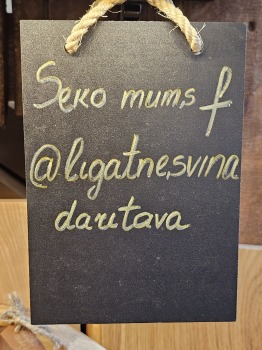 Seko mums f
@ligatnesvina
darītava